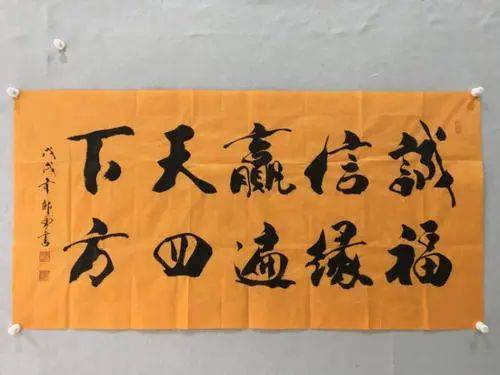 誠信贏天下
福緣遍四方
戊戌年 書